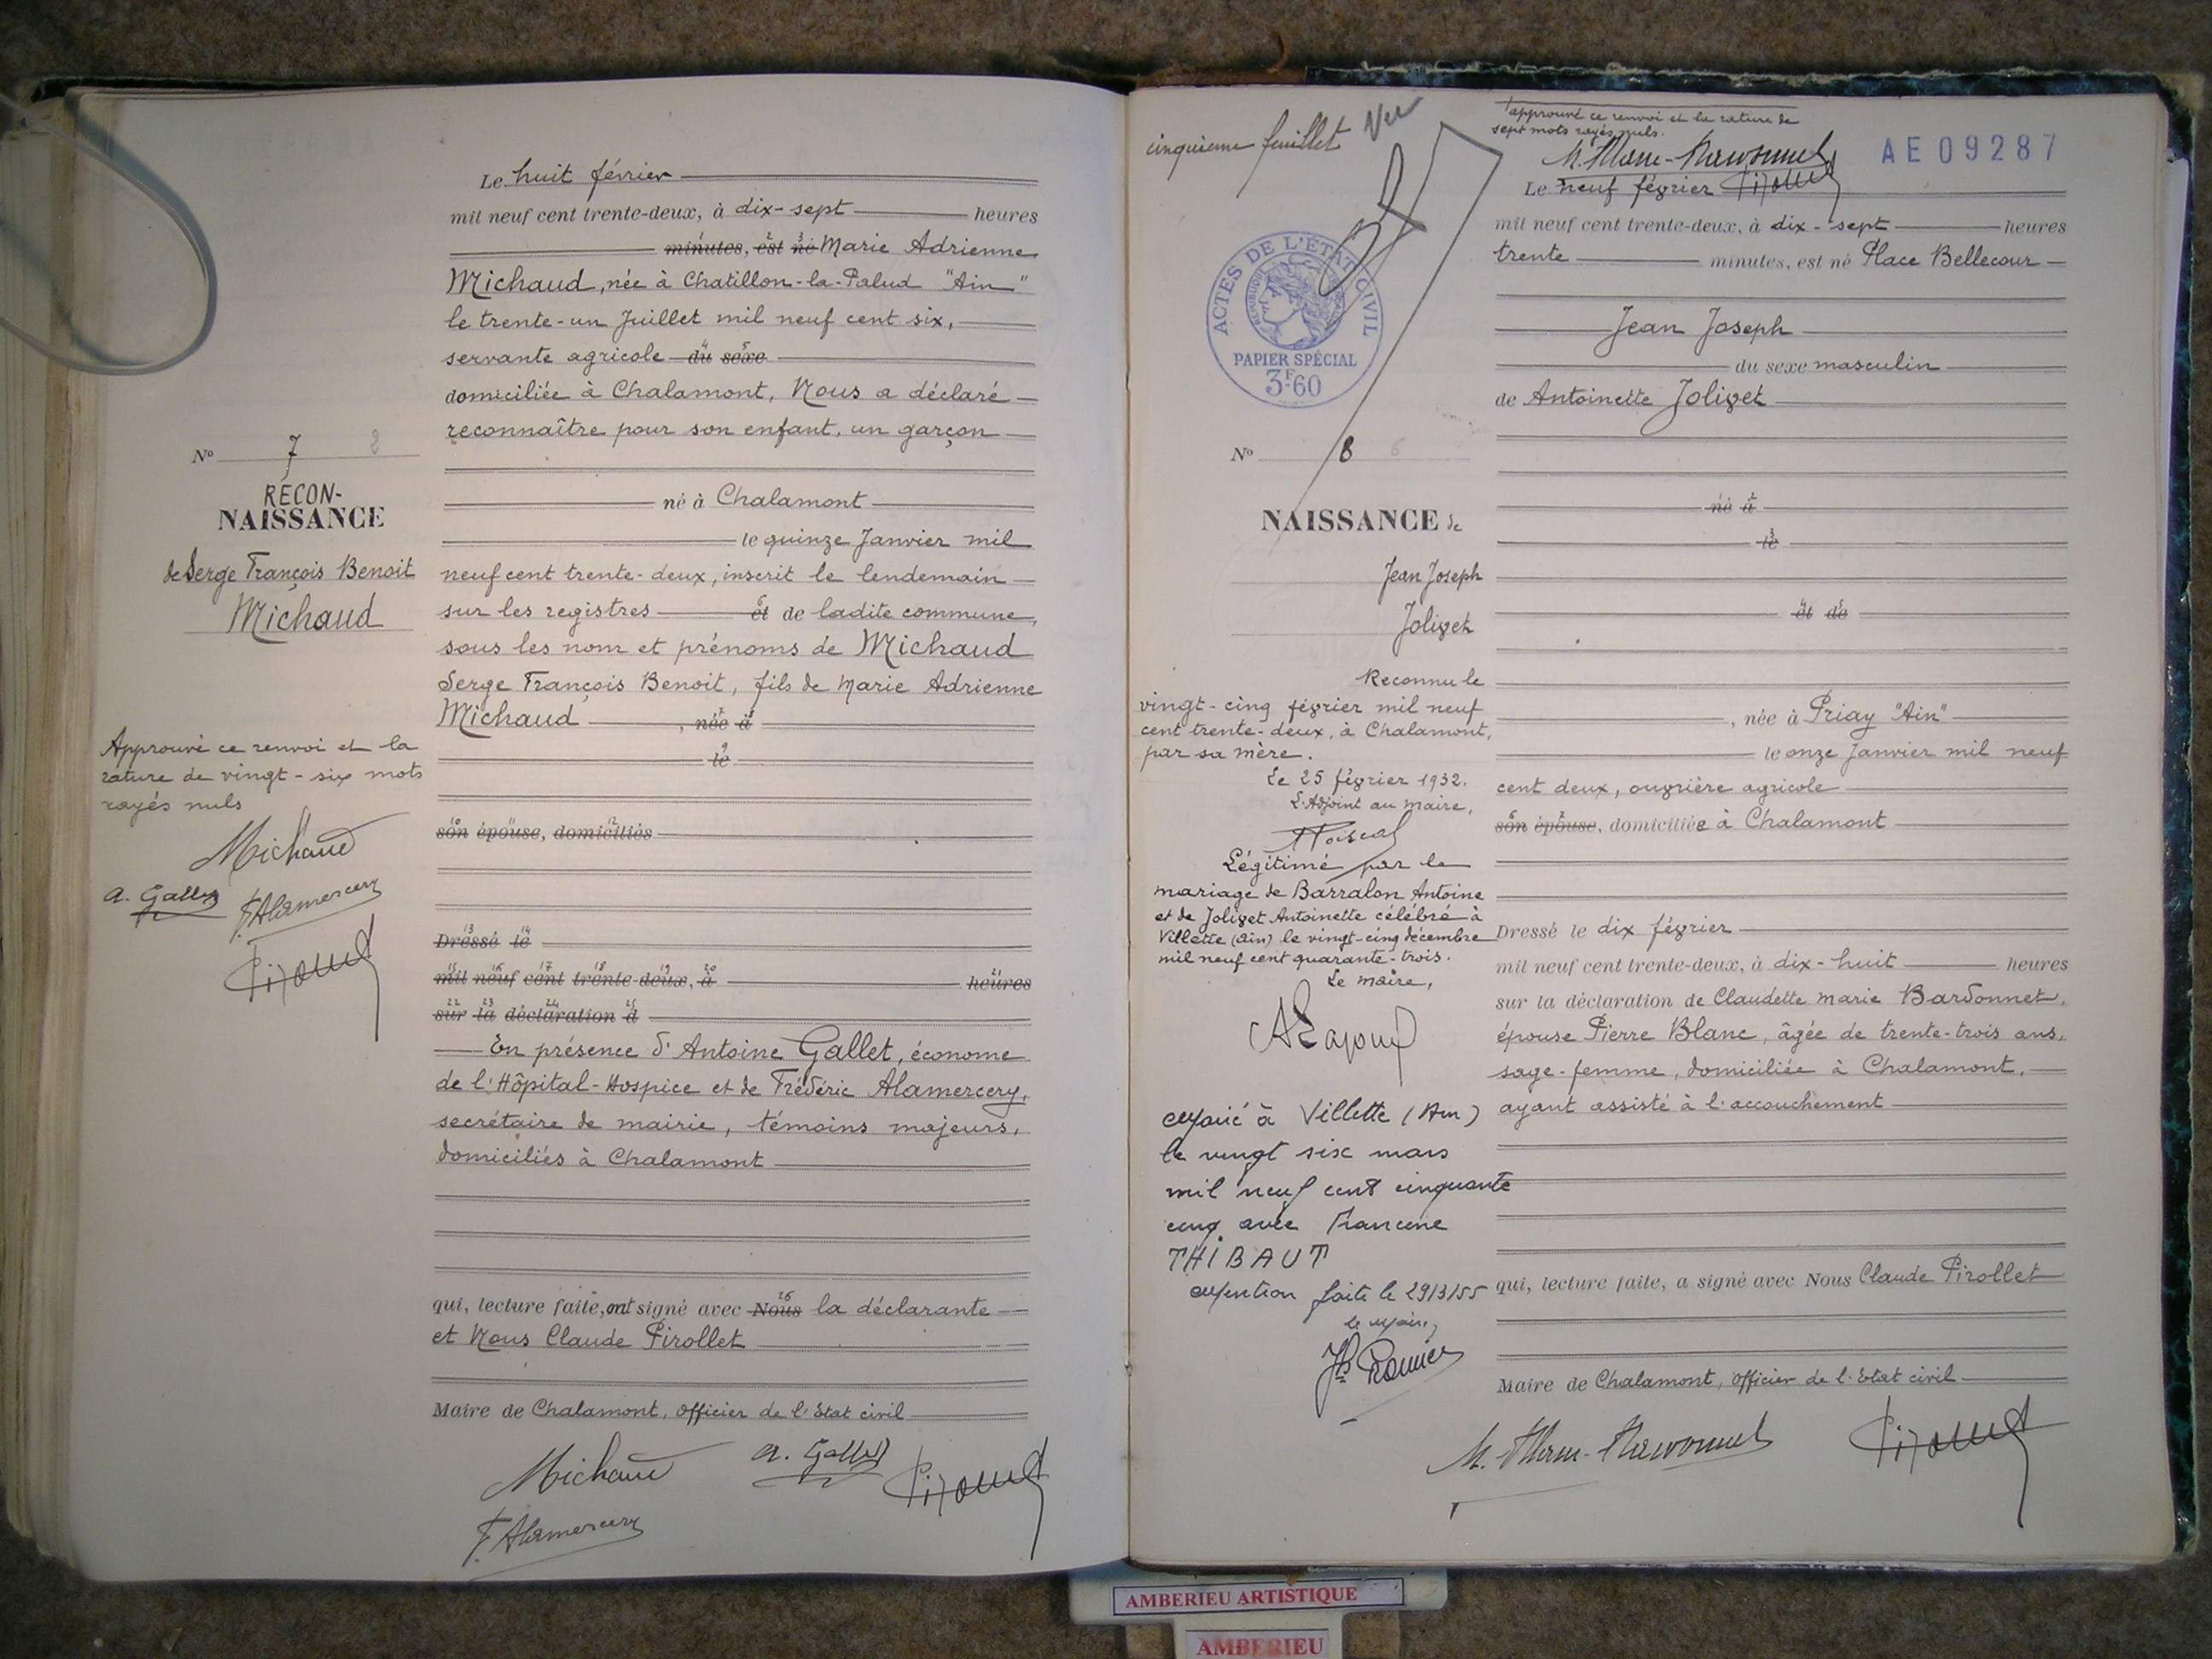 Le huit février
mil neuf cent trente-deux, à dix-sept heures
minutes, est né Marie Adrienne
Michaud, née à Chatillon-la-Palud "Ain"
le trente-un Juillet mil neuf cent six,
servante agricole du sexe
domiciliée à Chalamont, Nous a déclaré
reconnaître pour son enfant, un garçon
né à Chalamont
le quinze Janvier mil
neuf cent trente-deux, inscrit le lendemain
sur les registres et de ladite commune,
sous les nom et prénoms de Michaud
Serge François Benoit, fils de Marie Adrienne
Michaud, née à
le
son épouse, domiciliés
Dressé le
mil neuf cent trente-deux, à heures
sur la déclaration d
En présence d'Antoine Gallet, économe
de l'Hôpital-Hospice et de Frédéric Alamercery,
secrétaire de mairie, témoins majeurs,
domiciliés à Chalamont
qui, lecture faite, ont signé avec Nous la déclarante
et Nous Claude Pirollet
Maire de Chalamont, officier de l'Etat civil
Michaud A. Gallet Pirollet
F. Alamercery
N° 7 8
RECON-
NAISSANCE
de Serge François Benoit
Michaud
Approuvé ce renvoi et la
rature de vingt-six mots
rayés nuls
Michaud
A. Gallet F. Alamercery
Pirollet
cinquième feuillet
ACTES DE L'ÉTAT CIVIL
RÉPUBLIQUE
PAPIER SPÉCIAL
3F60
N° 8 6
NAISSANCE de
Jean Joseph
Jolivet
Reconnu le
vingt-cinq février mil neuf
cent trente-deux, à Chalamont,
par sa mère.
Le 25 février 1932.
L'Adjoint au maire,
Légitimé par le
mariage de Barralon Antoine
et de Jolivet Antoinette célébré à
Villette (Ain) le vingt-cinq décembre
mil neuf cent quarante-trois.
Le maire,
Marié à Villette (Ain)
le vingt six mars
mil neuf cent cinquante
cinq avec Francine
THIBAUT
Mention faite le 29/3/55
le Maire,
approuvé ce renvoi et la rature de
sept mots rayés nuls.
M. Blanc-Bardonnet
AE09287
Le neuf février Pirollet
mil neuf cent trente-deux, à dix-sept heures
trente minutes, est né Place Bellecour
Jean Joseph
du sexe masculin
de Antoinette Jolivet
né à
le
et de
, née à Priay "Ain"
le onze Janvier mil neuf
cent deux, ouvrière agricole
son épouse, domiciliée à Chalamont
Dressé le dix février
mil neuf cent trente-deux, à dix-huit heures
sur la déclaration de Claudette Marie Bardonnet,
épouse Pierre Blanc, âgée de trente-trois ans,
sage-femme, domiciliée à Chalamont,
ayant assisté à l'accouchement
qui, lecture faite, a signé avec Nous Claude Pirollet
Maire de Chalamont, officier de l'Etat civil
M. Blanc-Bardonnet Pirollet
AMBERIEU ARTISTIQUE
AMBERIEU